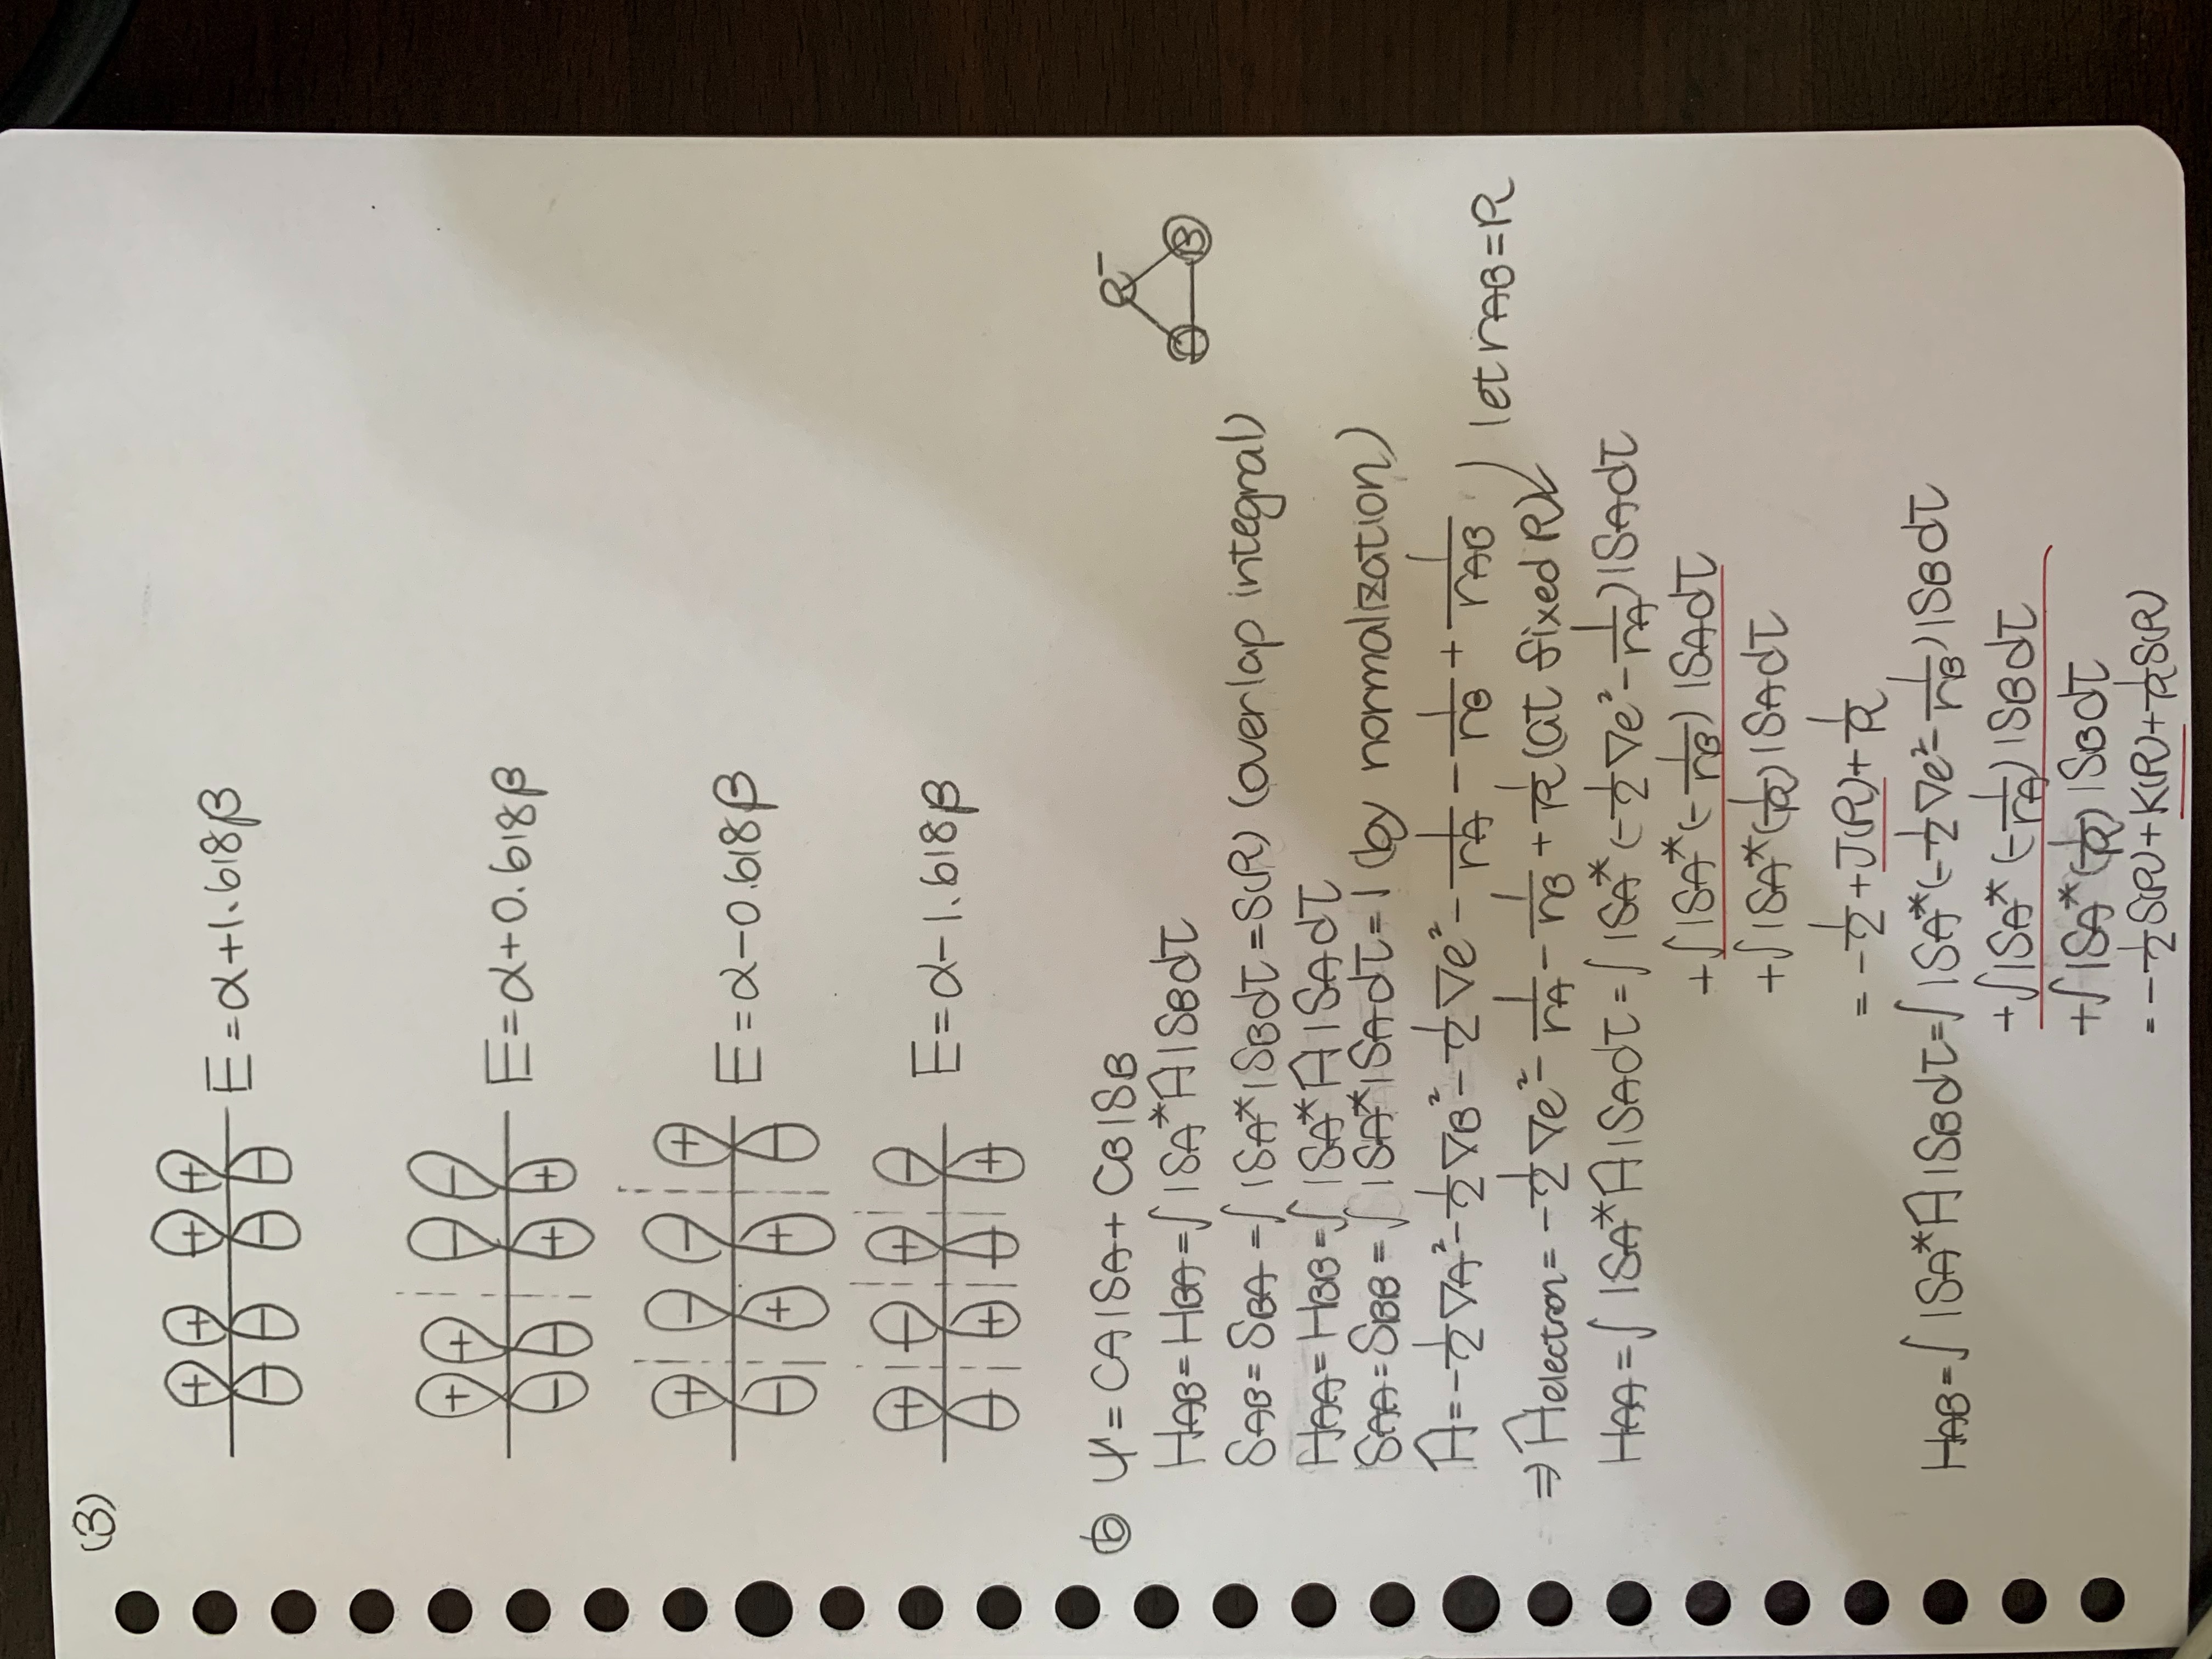 (3)
+ + + +
− − − −
E=α+1.618β
+ + − −
− − + +
E=α+0.618β
+ − − +
− + + −
E=α−0.618β
+ − + −
− + − +
E=α−1.618β
⑥ Ψ=CA1SA+CB1SB
e⁻
A B
HAB=HBA=∫1SA*Ĥ1SBdτ
SAB=SBA=∫1SA*1SBdτ=S(R) (overlap integral)
HAA=HBB=∫1SA*Ĥ1SAdτ
SAA=SBB=∫1SA*1SAdτ=1 (by normalization)
Ĥ=−1/2∇A²−1/2∇B²−1/2∇e²−1/rA−1/rB+1/rAB
let rAB=R
⇒Ĥelectron=−1/2∇e²−1/rA−1/rB+1/R(at fixed R)
HAA=∫1SA*Ĥ1SAdτ=∫1SA*(−1/2∇e²−1/rA)1SAdτ
+∫1SA*(−1/rB)1SAdτ
+∫1SA*(1/R)1SAdτ
=−1/2+J(R)+1/R
HAB=∫1SA*Ĥ1SBdτ=∫1SA*(−1/2∇e²−1/rB)1SBdτ
+∫1SA*(−1/rA)1SBdτ
+∫1SA*(1/R)1SBdτ
=−1/2S(R)+K(R)+1/RS(R)